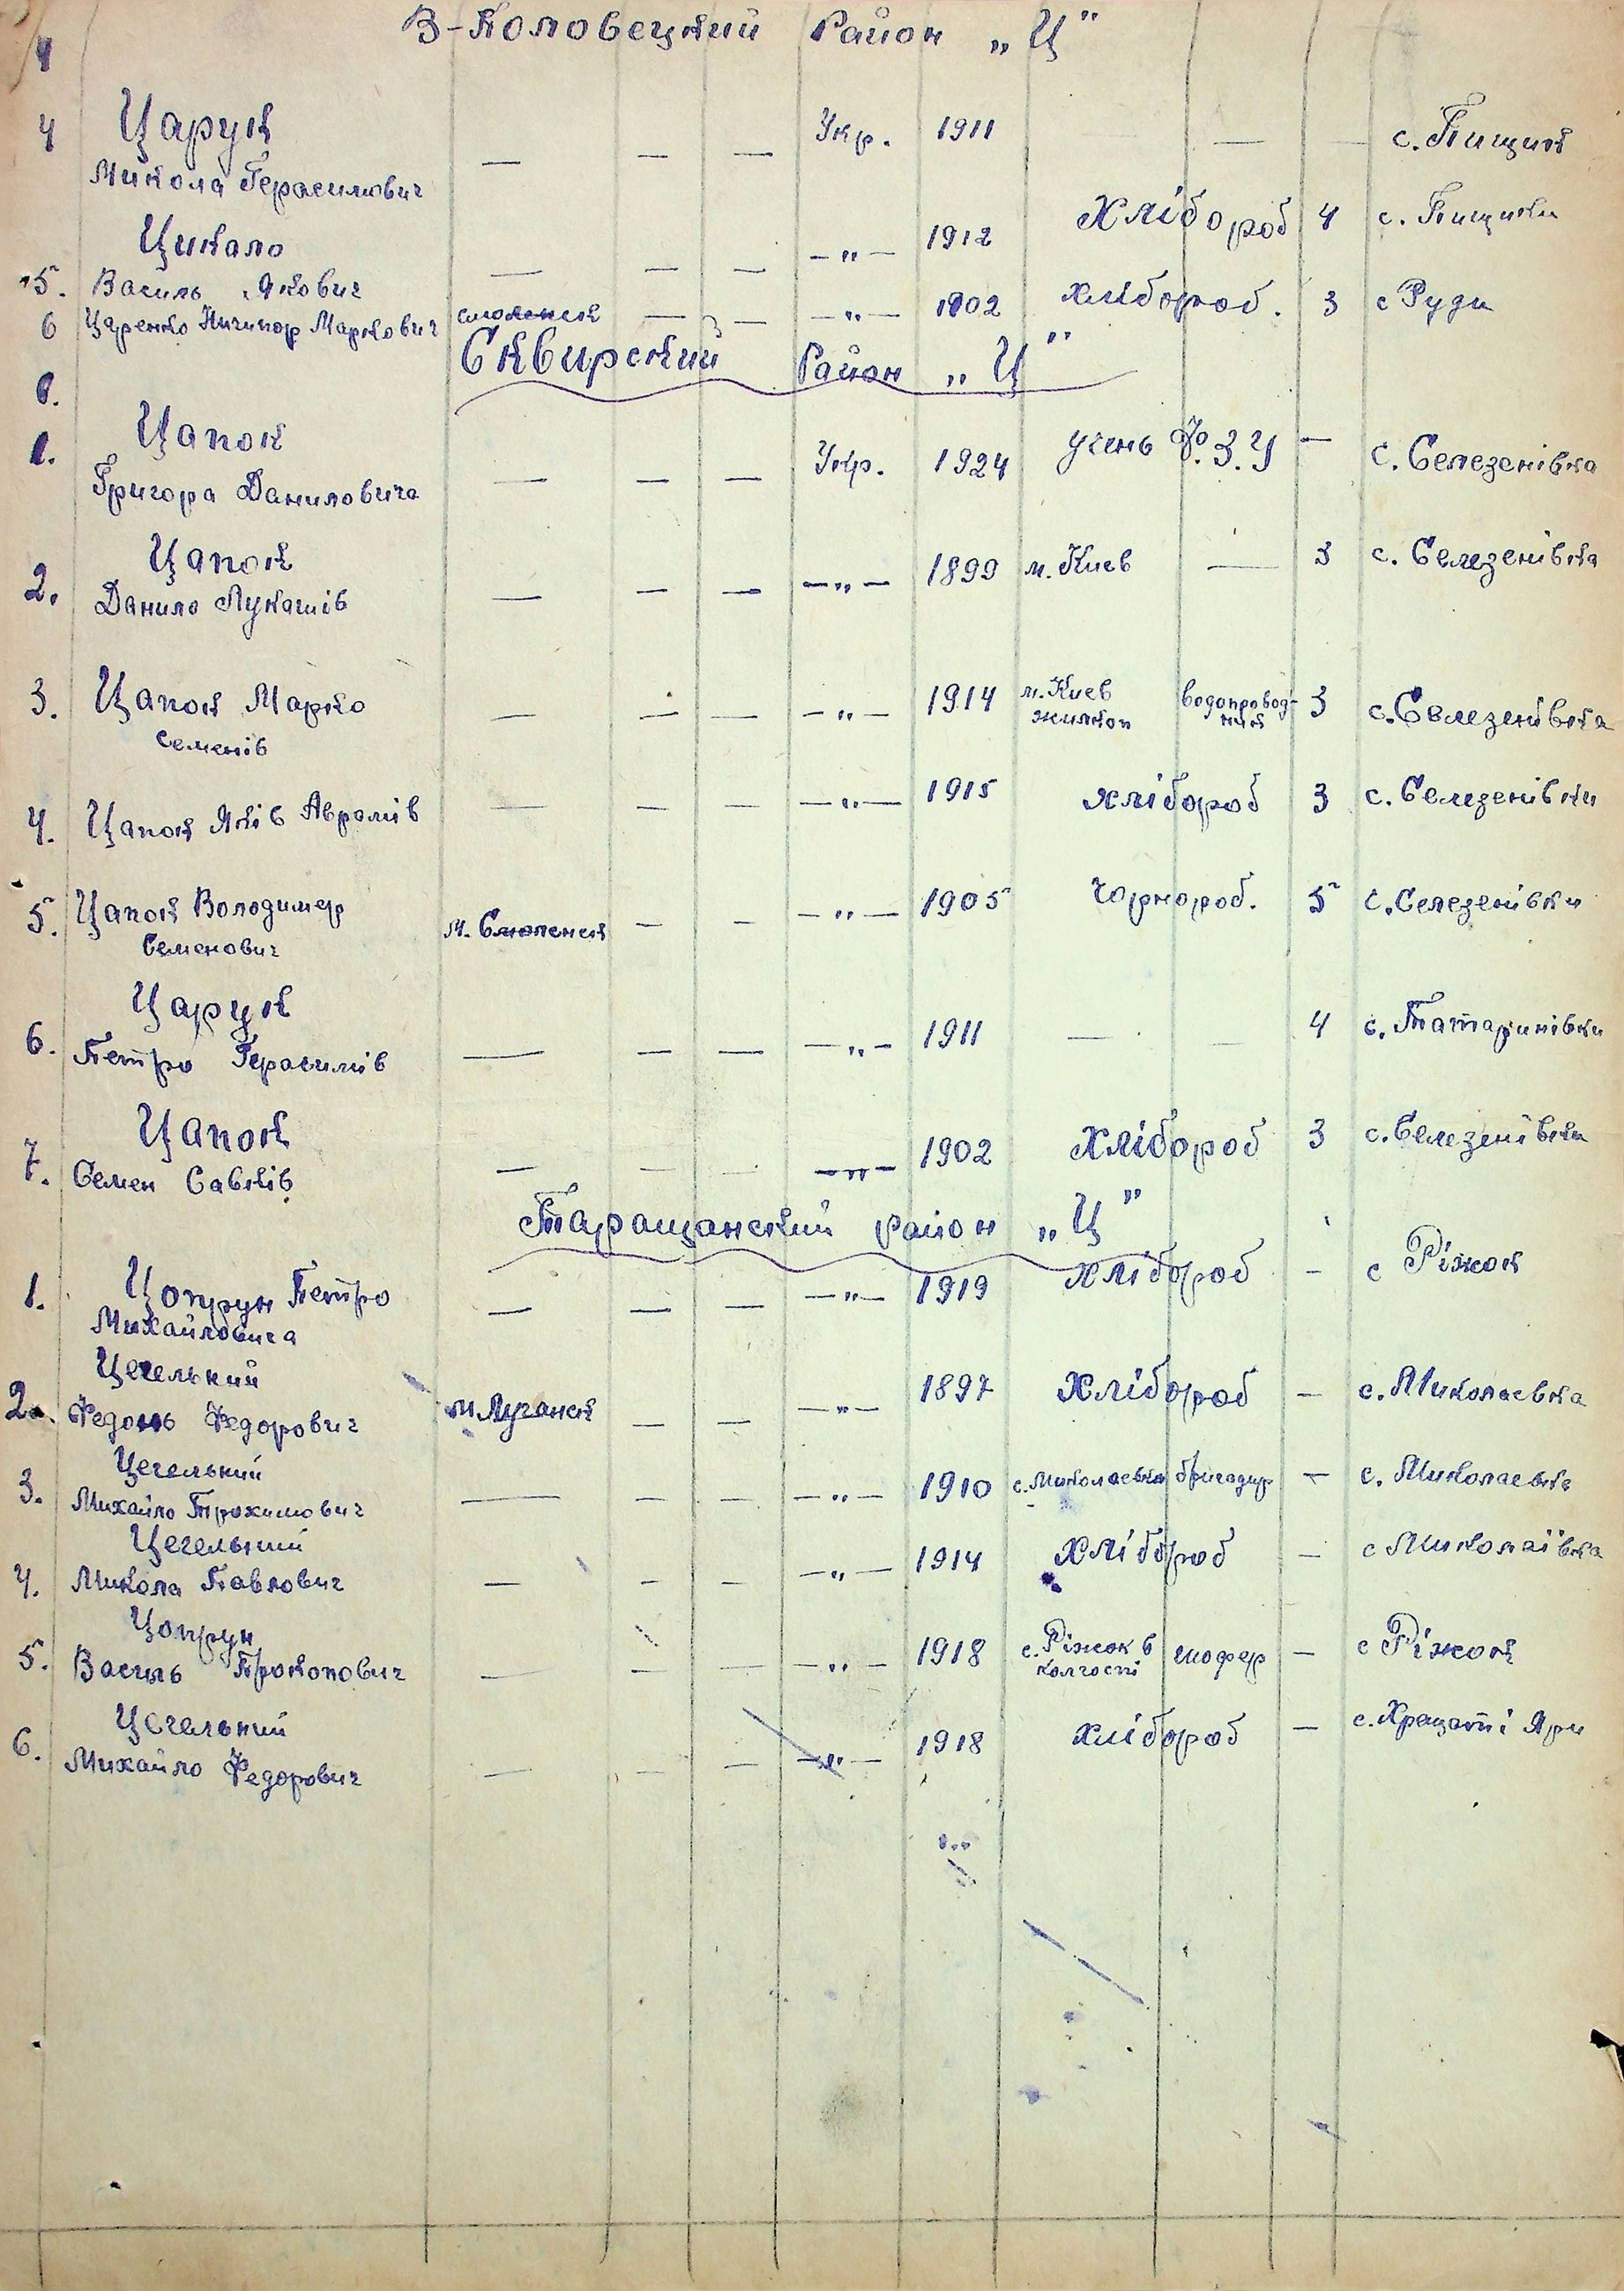 В-Половецкий Район „Ц"
4
4 Царук Укр. 1911 — — с. Пищик
Микола Герасимович — — —
Цикало — „ — 1912 Хлібороб 4 с. Пищики
5. Василь Якович — — —
6 Царенко Ничипор Маркович смоленск — — — „ — 1902 хлібороб. 3 с Руди
Сквирский Район „Ц"
1. Цапок Укр. 1924 учень Ф.З.У — с. Селезенівка
Григора Даниловича — — —
2. Цапок — „ — 1899 м. Киев — 3 с. Селезенівка
Данило Лукашів — — —
3. Цапок Марко — — — — „ — 1914 м. Киев водопровод- 3 с. Селезенівка
Семенів жилкоп ник
4. Цапок Яків Аврамів — — — — „ — 1915 хлібороб 3 с. Селезенівки
5. Цапок Володимер м. Смоленск — — — „ — 1905 Чорнороб. 5 с. Селезенівки
Семенович
6. Царук — „ — 1911 — — 4 с. Татаринівки
Петро Герасимів — — —
7. Цапок — „ — 1902 Хлібороб 3 с. Селезенівки
Семен Савків — — —
Таращанский район „Ц"
1. Цопрун Петро — — — — „ — 1919 хлібороб — с Ріжок
Михайловича
Цегельний
2. Федось Федорович м Луганск — — — „ — 1897 Хлібороб — с. Миколаевка
Цегельний
3. Михайло Трохимович — — — — „ — 1910 с. Миколаевка бригадир — с. Миколаевка
Цегельний
4. Микола Павлович — — — — „ — 1914 Хлібороб — с Миколаївка
Цопрун
5. Василь Прокопович — — — — „ — 1918 с. Ріжок в шофер — с Ріжок
колгоспі
Цегельний
6. Михайло Федорович — — — — „ — 1918 хлібороб — с. Хрещаті Яри